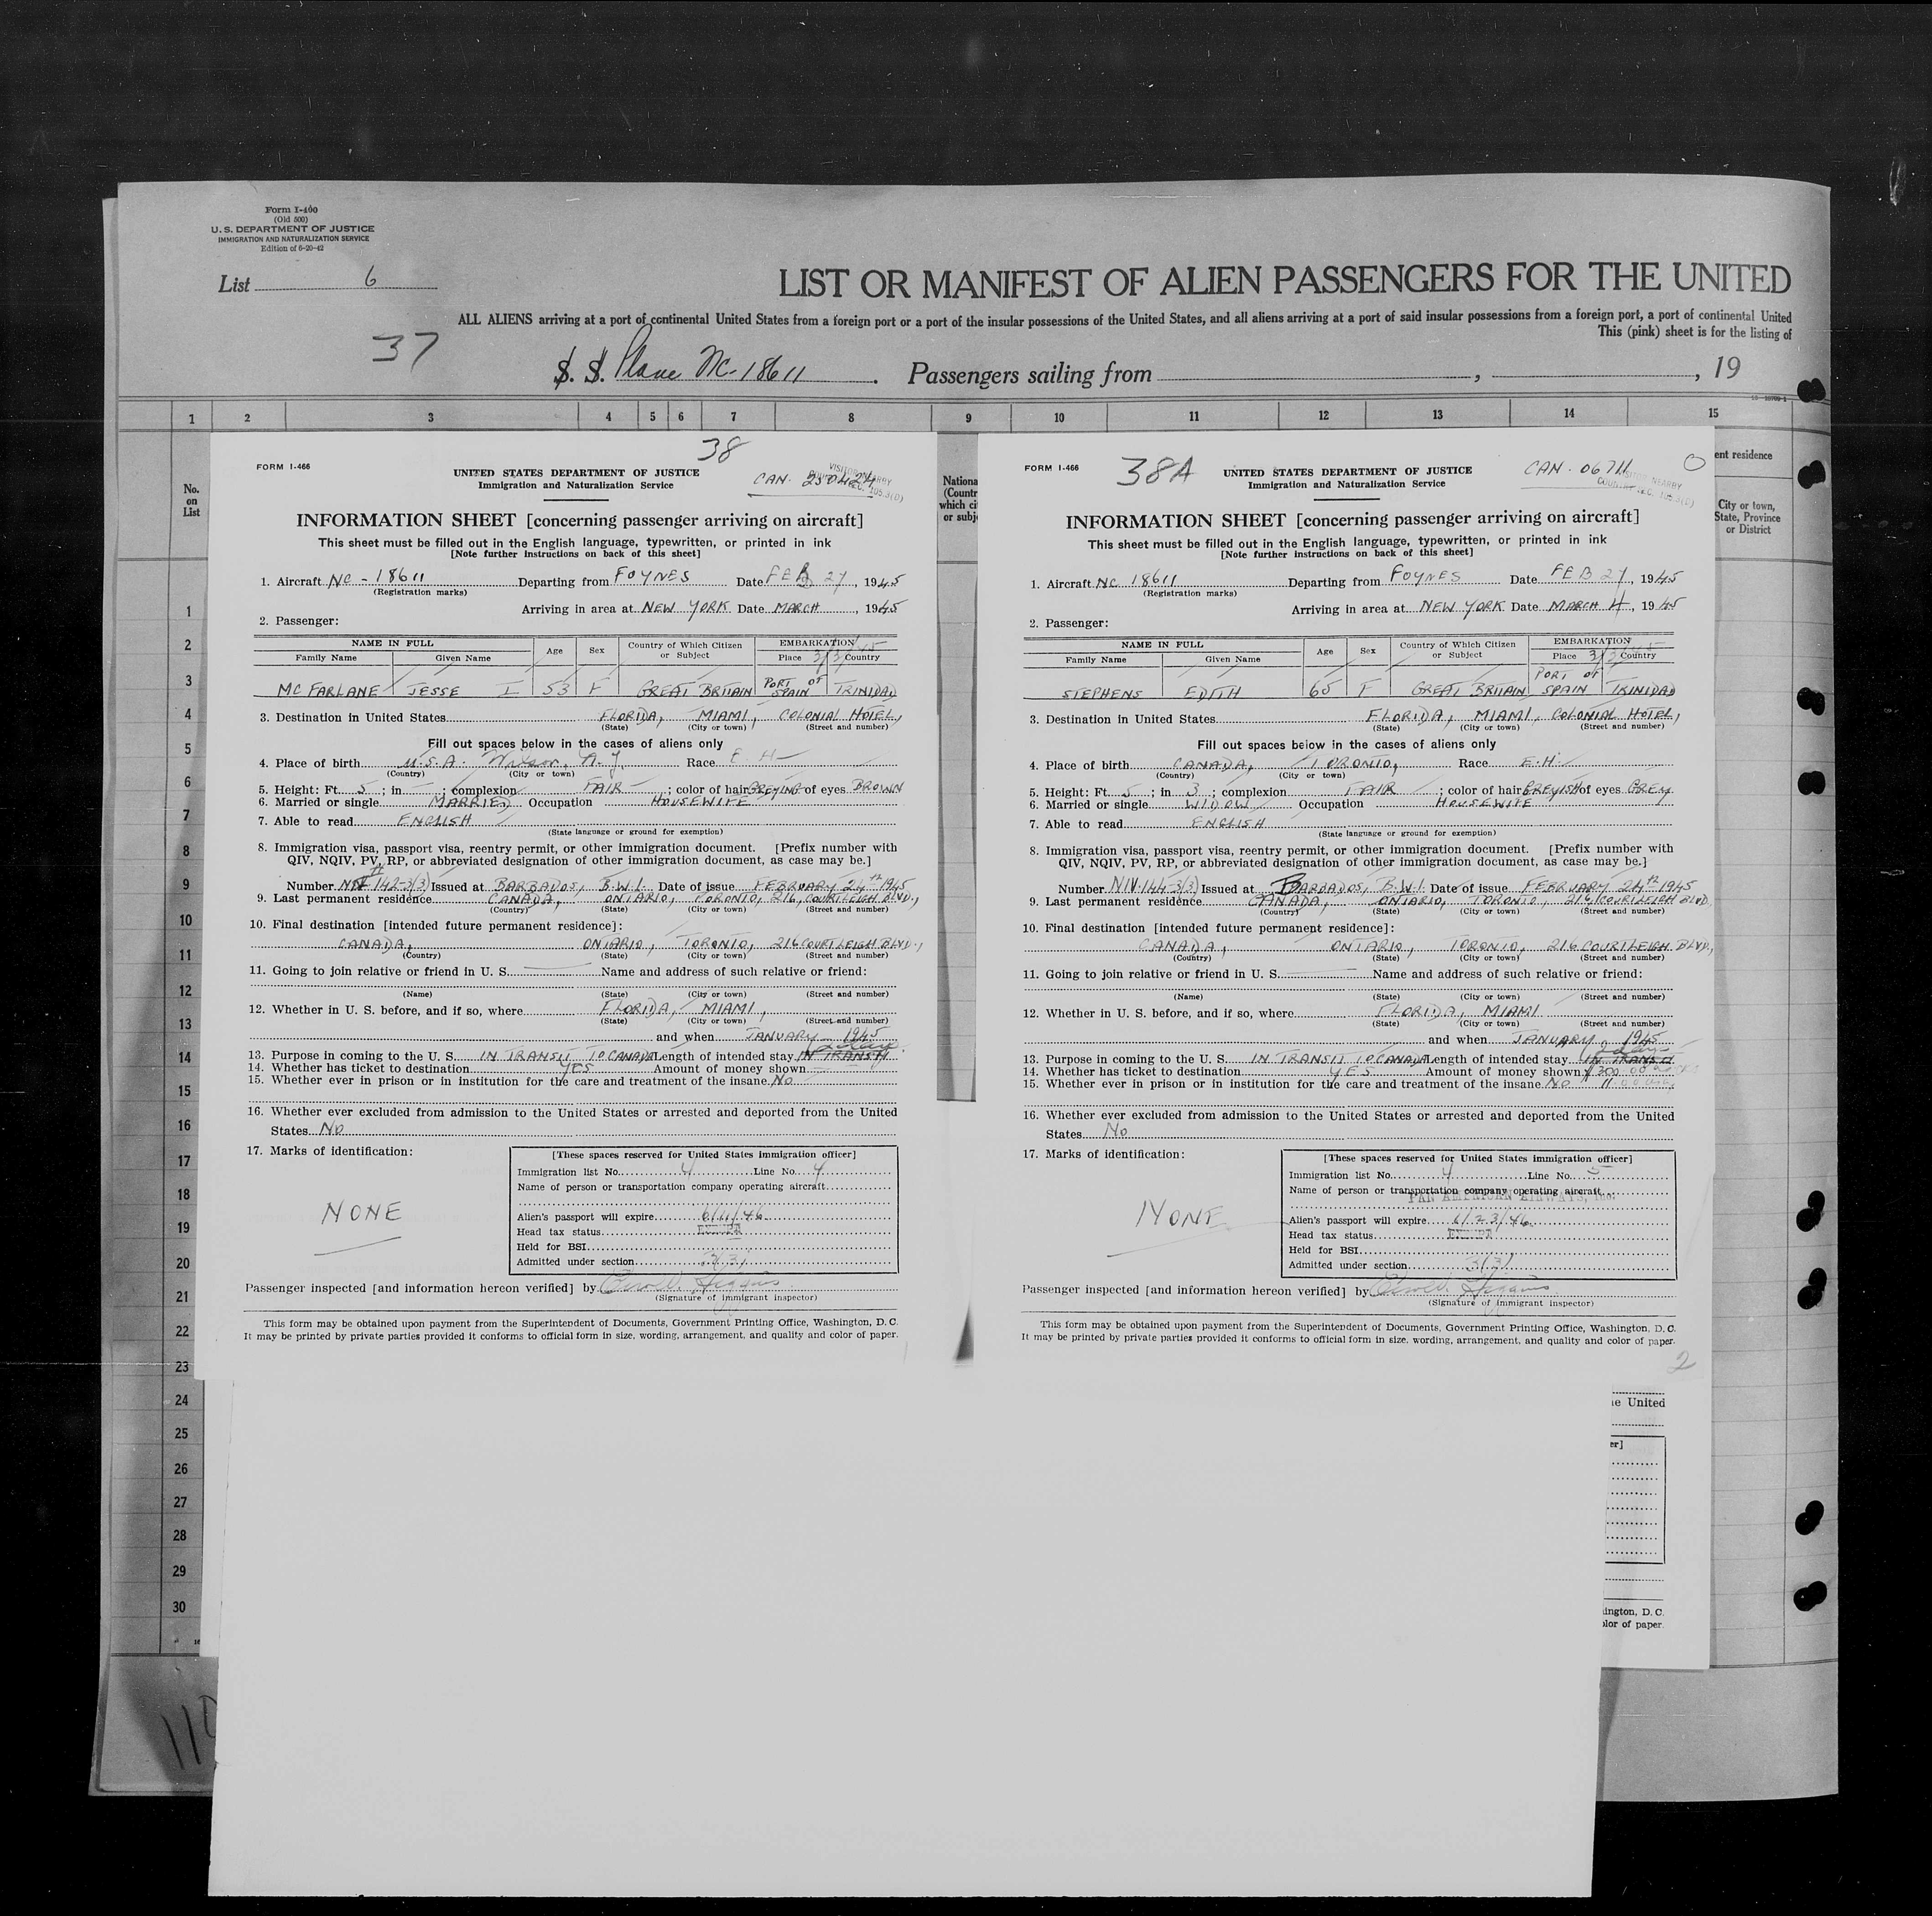 Form I-400
(Old 500)
U. S. DEPARTMENT OF JUSTICE
IMMIGRATION AND NATURALIZATION SERVICE
Edition of 6-20-42
List 6
LIST OR MANIFEST OF ALIEN PASSENGERS FOR THE UNITED
ALL ALIENS arriving at a port of continental United States from a foreign port or a port of the insular possessions of the United States, and all aliens arriving at a port of said insular possessions from a foreign port, a port of continental United
This (pink) sheet is for the listing of
37
S. S. Plane NC-18611. Passengers sailing from , , 19
1 2 3 4 5 6 7 8 9 10 11 12 13 14 15
No.
on
List
1
2
3
4
5
6
7
8
9
10
11
12
13
14
15
16
17
18
19
20
21
22
23
24
25
26
27
28
29
30
38
FORM I-466
UNITED STATES DEPARTMENT OF JUSTICE
Immigration and Naturalization Service
CAN.
INFORMATION SHEET [concerning passenger arriving on aircraft]
This sheet must be filled out in the English language, typewritten, or printed in ink
[Note further instructions on back of this sheet]
1. Aircraft NC-18611 Departing from FOYNES Date FEB 27, 1945
(Registration marks)
Arriving in area at NEW YORK Date MARCH , 1945
2. Passenger:
NAME IN FULL Age Sex Country of Which Citizen or Subject EMBARKATION
Family Name Given Name Place Country
MCFARLANE JESSE I 53 F GREAT BRITAIN PORT OF SPAIN TRINIDAD
3. Destination in United States FLORIDA, MIAMI, COLONIAL HOTEL,
(State) (City or town) (Street and number)
Fill out spaces below in the cases of aliens only
4. Place of birth U.S.A. Wilson, N.Y. Race E. H
(Country) (City or town)
5. Height: Ft. 5; in — ; complexion FAIR ; color of hair GREYING of eyes BROWN
6. Married or single MARRIED Occupation HOUSEWIFE
7. Able to read ENGLISH
(State language or ground for exemption)
8. Immigration visa, passport visa, reentry permit, or other immigration document. [Prefix number with
QIV, NQIV, PV, RP, or abbreviated designation of other immigration document, as case may be.]
Number 142-3(3) Issued at BARBADOS, B.W.I. Date of issue FEBRUARY 24th 1945
9. Last permanent residence CANADA, ONTARIO, TORONTO, 216, COURTLEIGH BLVD.,
(Country) (State) (City or town) (Street and number)
10. Final destination [intended future permanent residence]:
CANADA, ONTARIO, TORONTO, 216 COURTLEIGH BLVD.,
(Country) (State) (City or town) (Street and number)
11. Going to join relative or friend in U. S. Name and address of such relative or friend:
(Name) (State) (City or town) (Street and number)
12. Whether in U. S. before, and if so, where FLORIDA, MIAMI,
(State) (City or town) (Street and number)
and when JANUARY 1945
13. Purpose in coming to the U. S. IN TRANSIT TO CANADA Length of intended stay IN TRANSIT
14. Whether has ticket to destination YES Amount of money shown
15. Whether ever in prison or in institution for the care and treatment of the insane No
16. Whether ever excluded from admission to the United States or arrested and deported from the United
States No
17. Marks of identification:
NONE
[These spaces reserved for United States immigration officer]
Immigration list No. 4 Line No. 4
Name of person or transportation company operating aircraft
Alien's passport will expire 6/11/46
Head tax status
Held for BSI
Admitted under section 3(3)
Passenger inspected [and information hereon verified] by
(Signature of immigrant inspector)
This form may be obtained upon payment from the Superintendent of Documents, Government Printing Office, Washington, D. C.
It may be printed by private parties provided it conforms to official form in size, wording, arrangement, and quality and color of paper.
Nationa
(Countr
which cit
or subje
FORM I-466
38A
UNITED STATES DEPARTMENT OF JUSTICE
Immigration and Naturalization Service
CAN. 06711
INFORMATION SHEET [concerning passenger arriving on aircraft]
This sheet must be filled out in the English language, typewritten, or printed in ink
[Note further instructions on back of this sheet]
1. Aircraft NC 18611 Departing from FOYNES Date FEB 27, 1945
(Registration marks)
Arriving in area at NEW YORK Date MARCH 4, 1945
2. Passenger:
NAME IN FULL Age Sex Country of Which Citizen or Subject EMBARKATION
Family Name Given Name Place Country
STEPHENS EDITH 65 F GREAT BRITAIN PORT OF SPAIN TRINIDAD
3. Destination in United States FLORIDA, MIAMI, COLONIAL HOTEL,
(State) (City or town) (Street and number)
Fill out spaces below in the cases of aliens only
4. Place of birth CANADA, TORONTO, Race E.H.
(Country) (City or town)
5. Height: Ft. 5; in 3; complexion FAIR ; color of hair GREYISH of eyes GREY
6. Married or single WIDOW Occupation HOUSEWIFE
7. Able to read ENGLISH
(State language or ground for exemption)
8. Immigration visa, passport visa, reentry permit, or other immigration document. [Prefix number with
QIV, NQIV, PV, RP, or abbreviated designation of other immigration document, as case may be.]
Number NIV 144-3(3) Issued at BARBADOS, B.W.I. Date of issue FEBRUARY 24th 1945
9. Last permanent residence CANADA, ONTARIO, TORONTO, 216, COURTLEIGH BLVD
(Country) (State) (City or town) (Street and number)
10. Final destination [intended future permanent residence]:
CANADA, ONTARIO, TORONTO, 216 COURTLEIGH BLVD,
(Country) (State) (City or town) (Street and number)
11. Going to join relative or friend in U. S. Name and address of such relative or friend:
(Name) (State) (City or town) (Street and number)
12. Whether in U. S. before, and if so, where FLORIDA, MIAMI
(State) (City or town) (Street and number)
and when JANUARY 1945
13. Purpose in coming to the U. S. IN TRANSIT TO CANADA Length of intended stay IN TRANSIT
14. Whether has ticket to destination YES Amount of money shown $300.00
15. Whether ever in prison or in institution for the care and treatment of the insane No
16. Whether ever excluded from admission to the United States or arrested and deported from the United
States No
17. Marks of identification:
NONE
[These spaces reserved for United States immigration officer]
Immigration list No. 4 Line No. 5
Name of person or transportation company operating aircraft
PAN AMERICAN AIRWAYS, INC.
Alien's passport will expire 1/23/46
Head tax status
Held for BSI
Admitted under section 3(3)
Passenger inspected [and information hereon verified] by
(Signature of immigrant inspector)
This form may be obtained upon payment from the Superintendent of Documents, Government Printing Office, Washington, D. C.
It may be printed by private parties provided it conforms to official form in size, wording, arrangement, and quality and color of paper.
2
ent residence
City or town,
State, Province
or District
e United
er]
ington, D. C.
olor of paper.